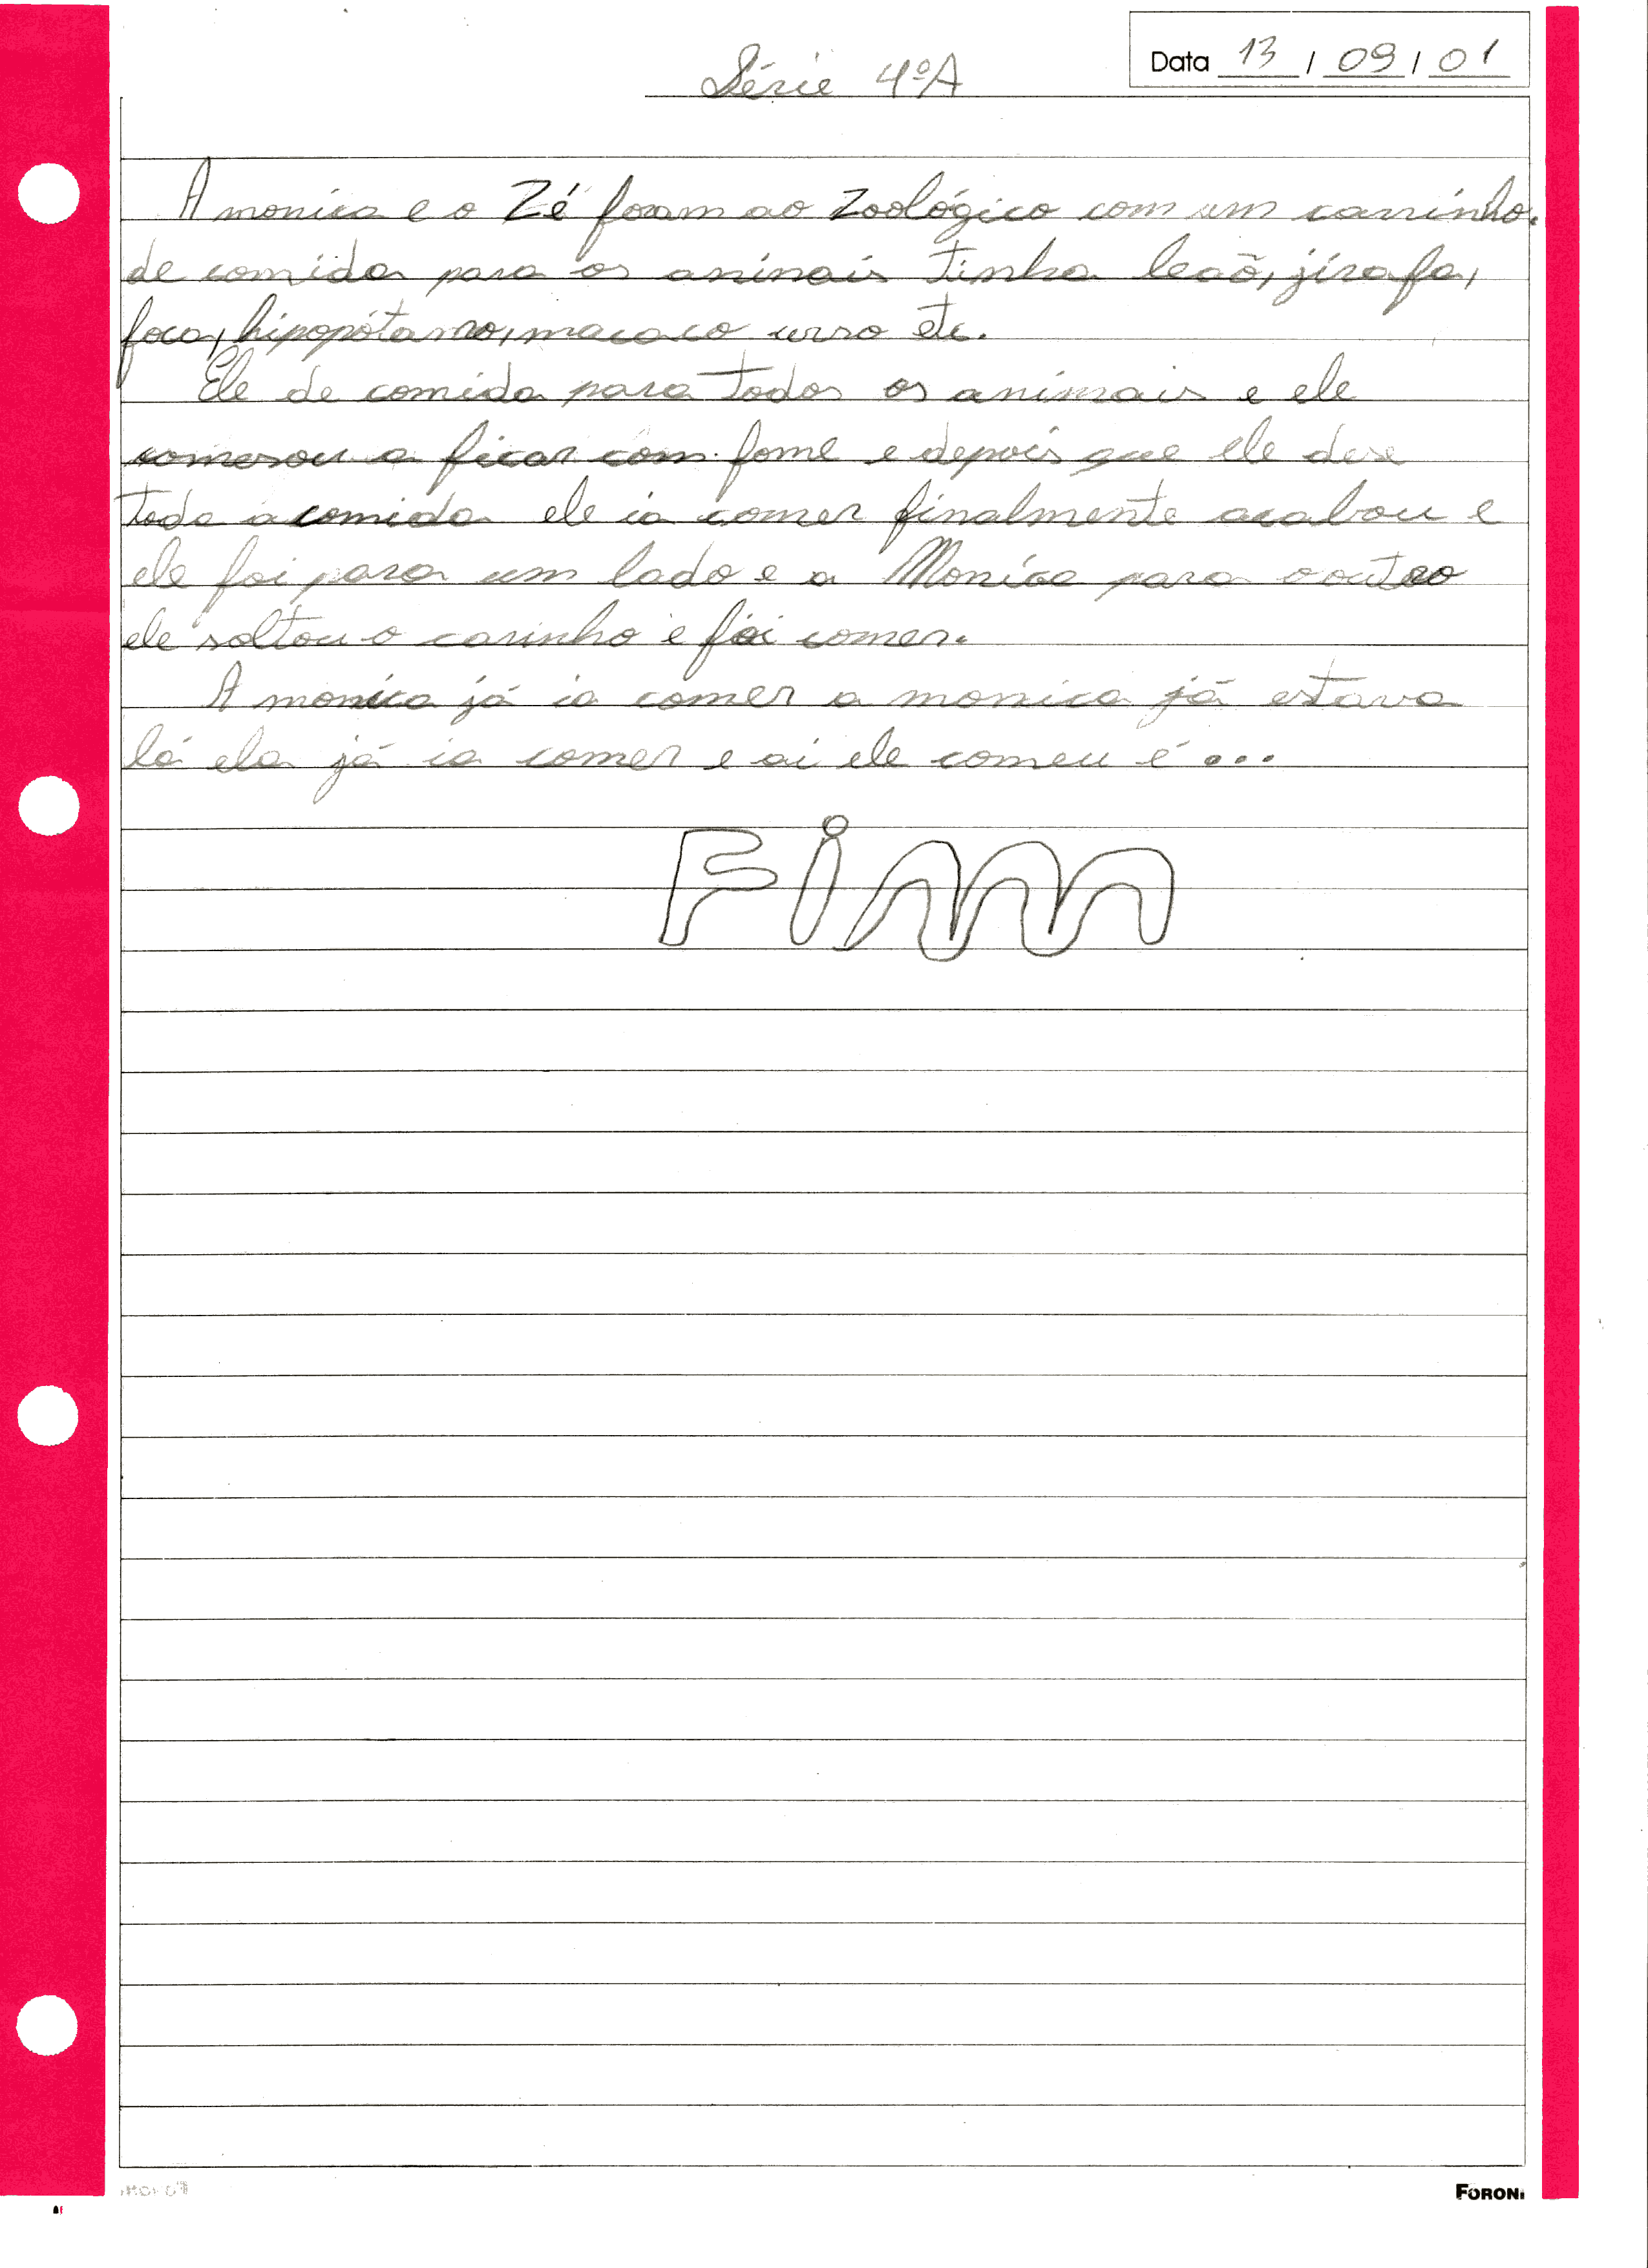 Série 4ºA
Data 13 / 09 / 01
A monica e o Zé foram ao Zoológico com um carrinho.
de comida para os aninais tinha leaõ, jirafa,
foca, hipopótamo, macaco urso etc.
Ele de comida para todos os animais e ele
comesou a ficar com fome e depois que ele dese
toda a comida ele ia comer finalmente acabou e
ele foi para um lado e a Monica para o outro
ele soltou o carinho e foi comer.
A monica já ia comer a monica já estava
lá ela já ia comer e ai ele comeu é ...
Fim
FORONI